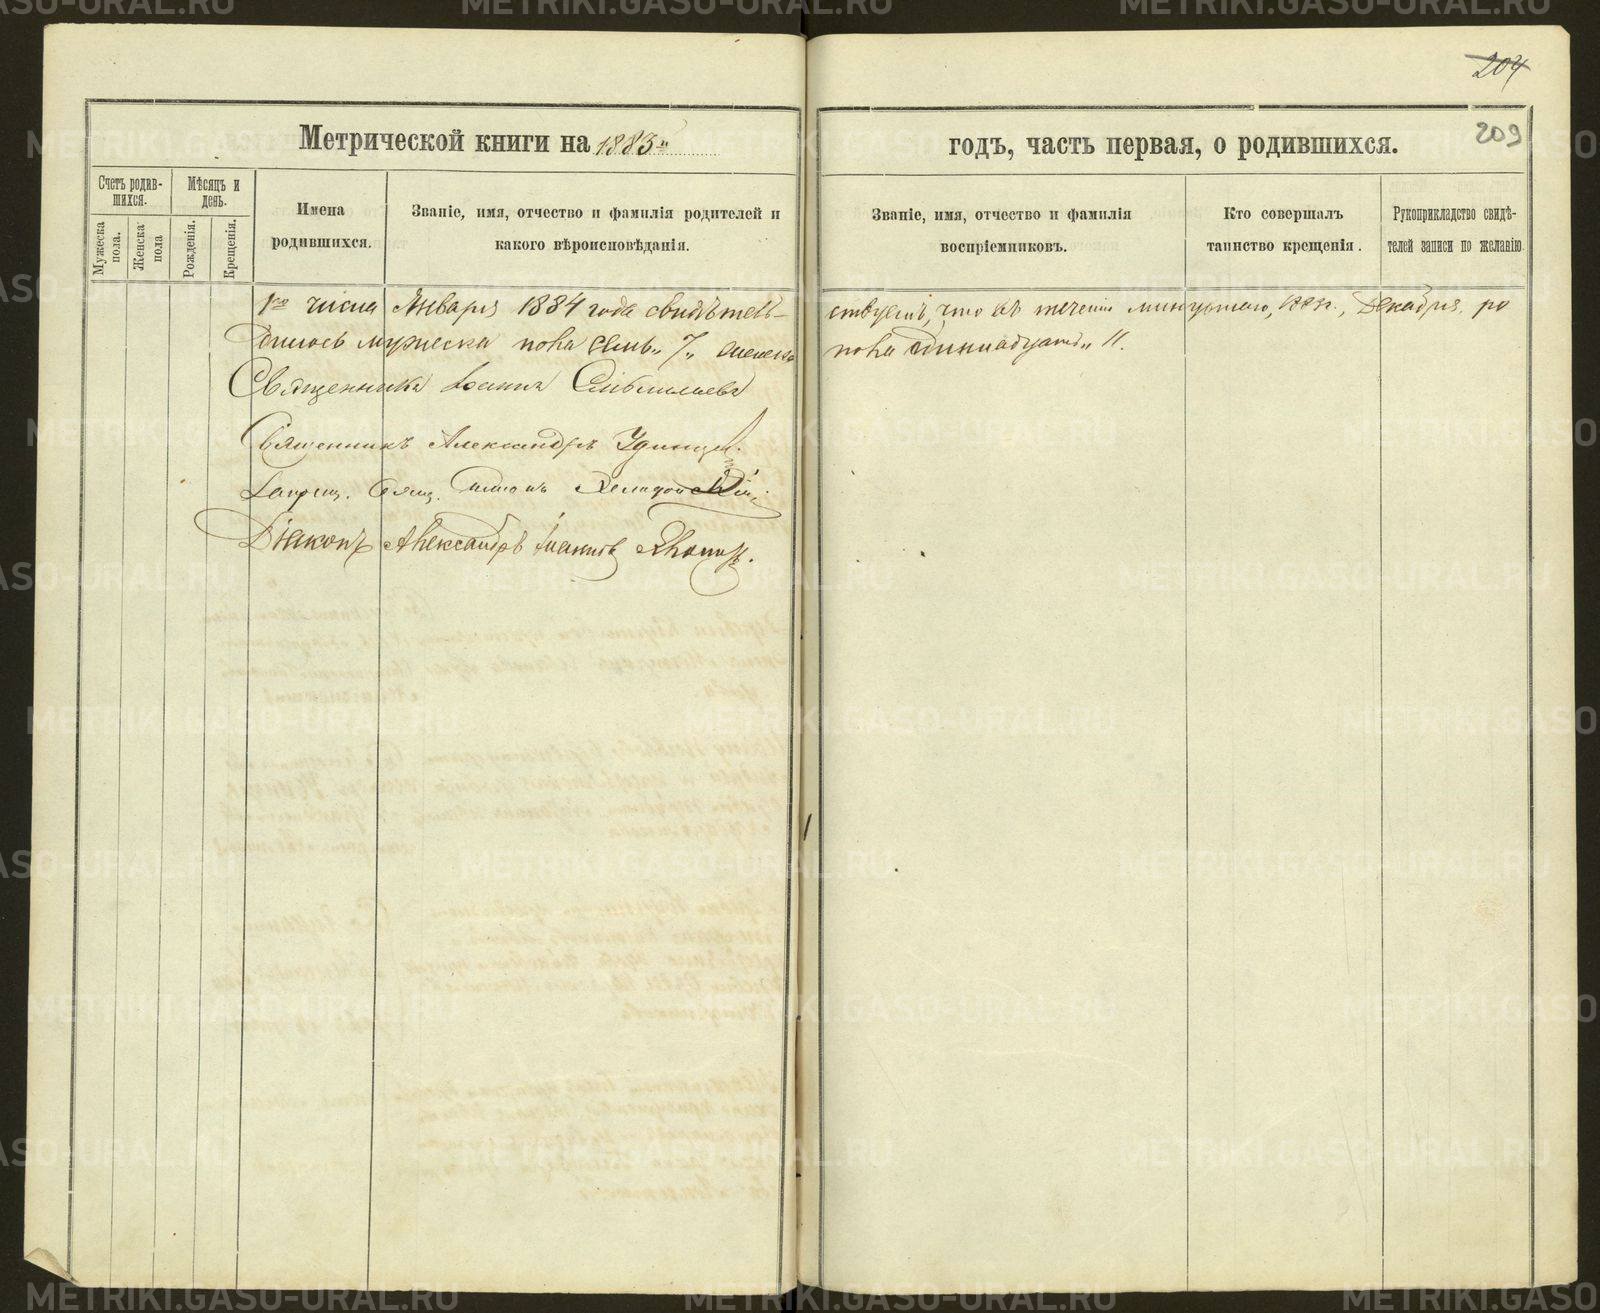 204
209
Метрической книги на 1883й годъ, часть первая, о родившихся.
Счетъ родив-
шихся.
Мужеска
пола.
Женска
пола
Мѣсяцъ и
день.
Рожденія.
Крещенія.
Имена
родившихся.
Званіе, имя, отчество и фамилія родителей и
какого вѣроисповѣданія.
Званіе, имя, отчество и фамилія
воспріемниковъ.
Кто совершалъ
таинство крещенія.
Рукоприкладство свидѣ-
телей записи по желанію.
1го числа Января 1884 года свидѣтель-
ствуемъ, что въ теченіи минувшаго, 1883г., Декабря, ро
дилось мужеска пола семь „7„ женска
пола одиннадцать „ 11.
Священника Іоанна
Священникъ Александръ Удинцевъ.
Свящ. Симеонъ
Діаконъ Александръ Іоанновъ
METRIKI.GASO-URAL.RU